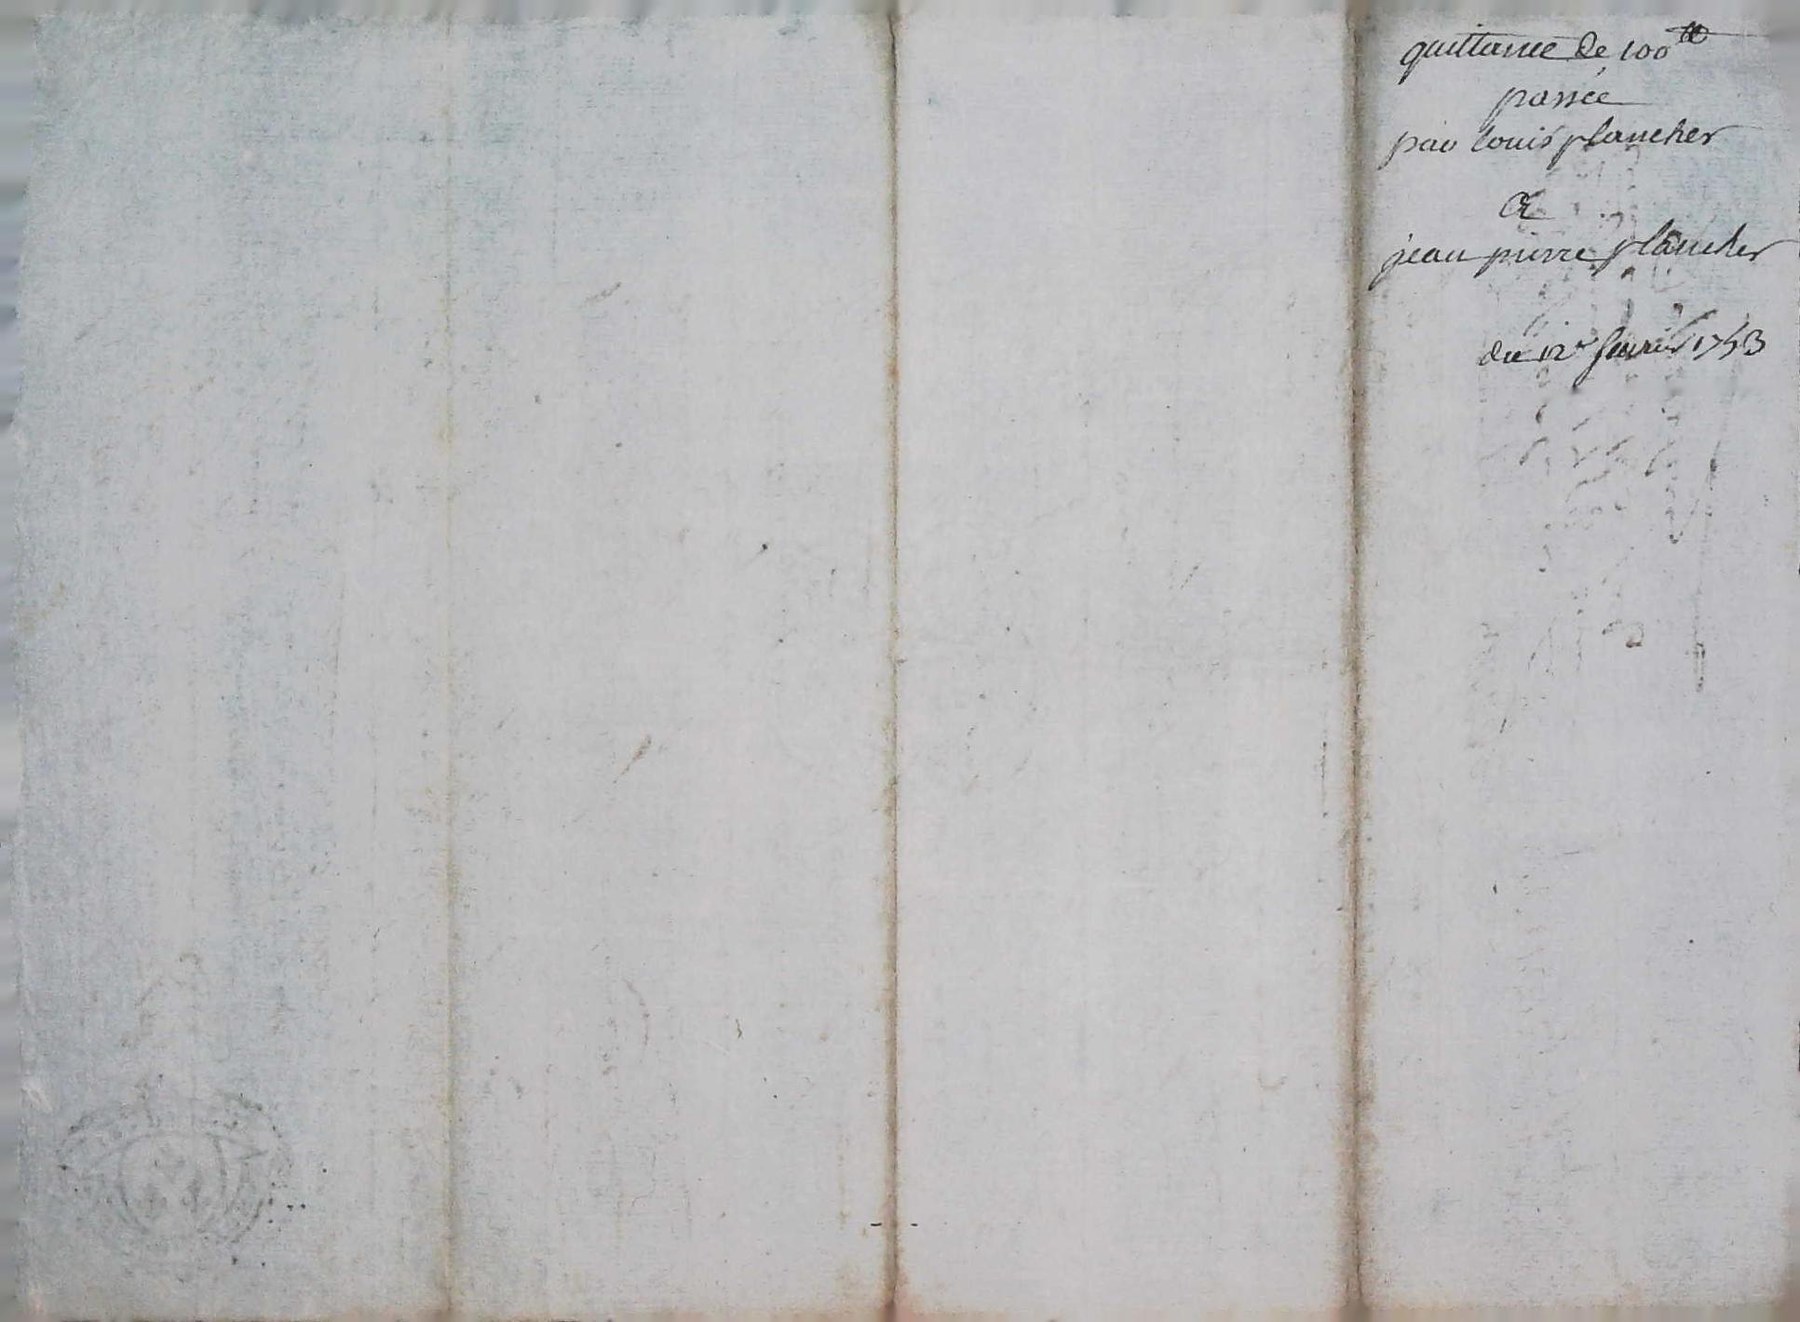 quittance de 100 ₶
passée
par louis plancher
a
jean pierre plancher
du 12e fevrier 1753